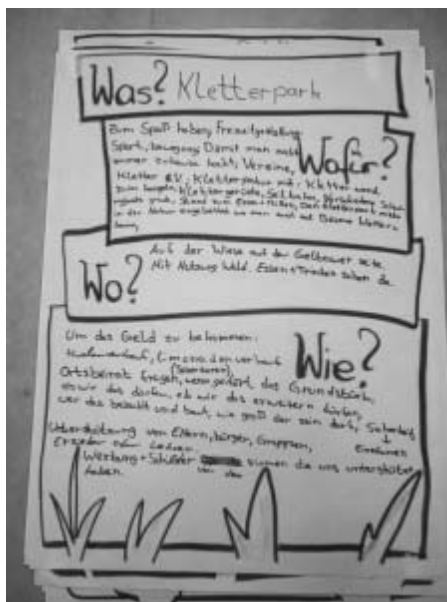 Was? Kletterpark
Zum Spaß haben, Freizeitgestaltung
Sport, bewegung, Damit man nicht
immer zuhause hockt, Vereine,
Wofür?
Kletter e.V., Kletterpark mit: Kletter wand,
Kletter gerüste, Seilbahn, Verschiedene
Stand zum Essen + Trinken, Den Kletterpark
in der Natur wo man auch auf Bäume klettern
kann,
Wo?
Auf der Wiese auf der
Mit Nutzung Wald. Essen + Trinken sollen da
Um das Geld zu bekommen:
Kuchenverkauf, Limonadenverkauf
(Sponsoren),
Wie?
Ortsbeirat fragen, wem gehört das Grundstück,
ob wir das dürfen, ob wir das erweitern dürfen,
wer das bezahlt und baut, wie groß der sein darf, Sicherheit
Unterstützung von Eltern, bürger, Gruppen,
Werbung + Schilder
die uns unterstützt
haben.